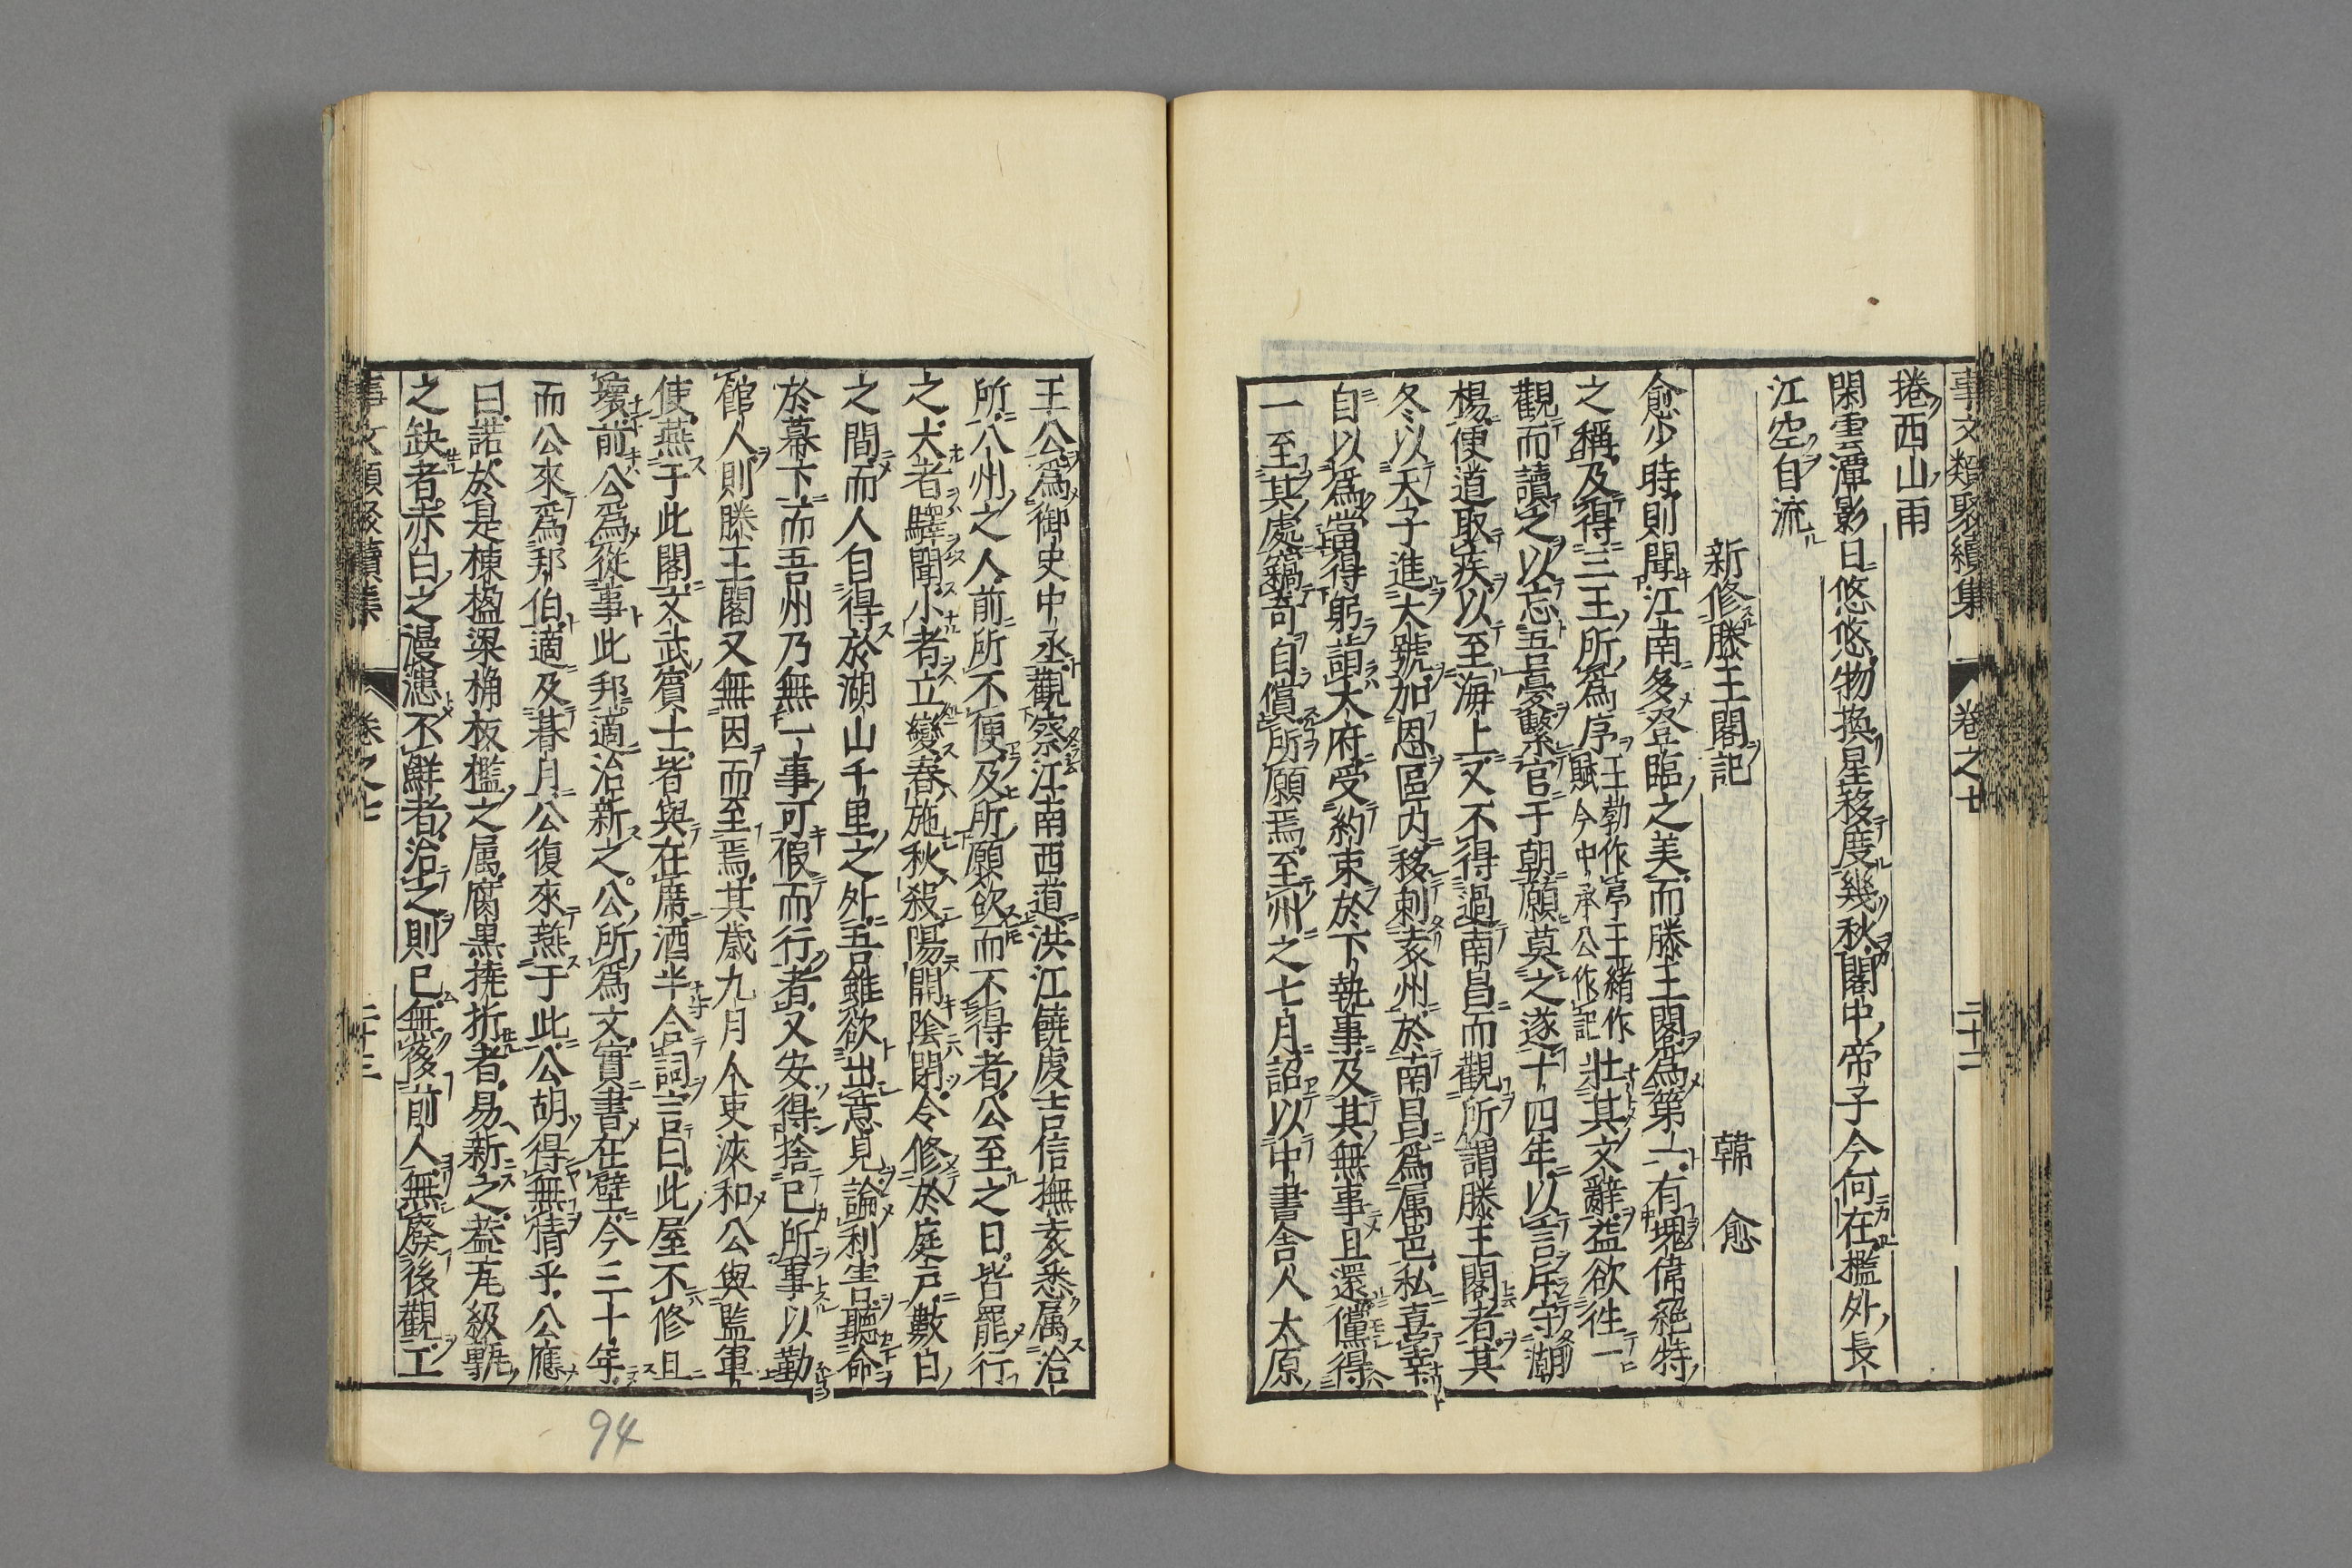 事文類聚續集　卷之七　二十二
捲西山雨
閑雲潭影日悠悠物換星移度幾秋閣中帝子今何在檻外長
江空自流
新修滕王閣記　韓愈
愈少時則聞江南多登臨之美而滕王閣爲第一有瑰偉絕特
之稱及得三王所爲序王勃作序王緒作賦今中丞公作記壯其文辭益欲往一
觀而讀之以忘吾憂繫官于朝願莫之遂十四年以言斥守潮
楊便道取疾以至海上又不得過南昌而觀所謂滕王閣者其
冬以天子進大號加恩區内移刺袁州於南昌爲属邑私喜幸
自以爲當得躬詣大府受約束於下執事及其無事且還儻得
一至其處竊寄自償所願焉至州之七月詔以中書舎人太原
王公爲御史中丞觀察江南西道洪江饒虔吉信撫袁悉属治
所八州之人前所不便及所願欲而不得者公至之日皆罷行
之大者驛聞小者立變春施秋殺陽開陰閉令修於庭戸數日
之間而人自得於湖山千里之外吾雖欲出意見論利害聽命
於幕下而吾州乃無一事可假而行者又安得捨已所事以勤
館人則滕王閣又無因而至焉其歳九月人吏浹和公與監軍
使燕于此閣文武賓士皆與在席酒半合詞言曰此屋不修且
壞前公爲從事此邦適治新之公所爲文實書在壁今三十年
而公來爲邦伯適及朞月公復來燕于此公胡得無情乎公應
曰諾於是棟楹梁桷板檻之属腐黒撓折者易新之蓋瓦級甎
之缺者赤白之漫漶不鮮者治之則已無侈前人無廢後觀工
事文類聚續集　卷之七　二十三
94